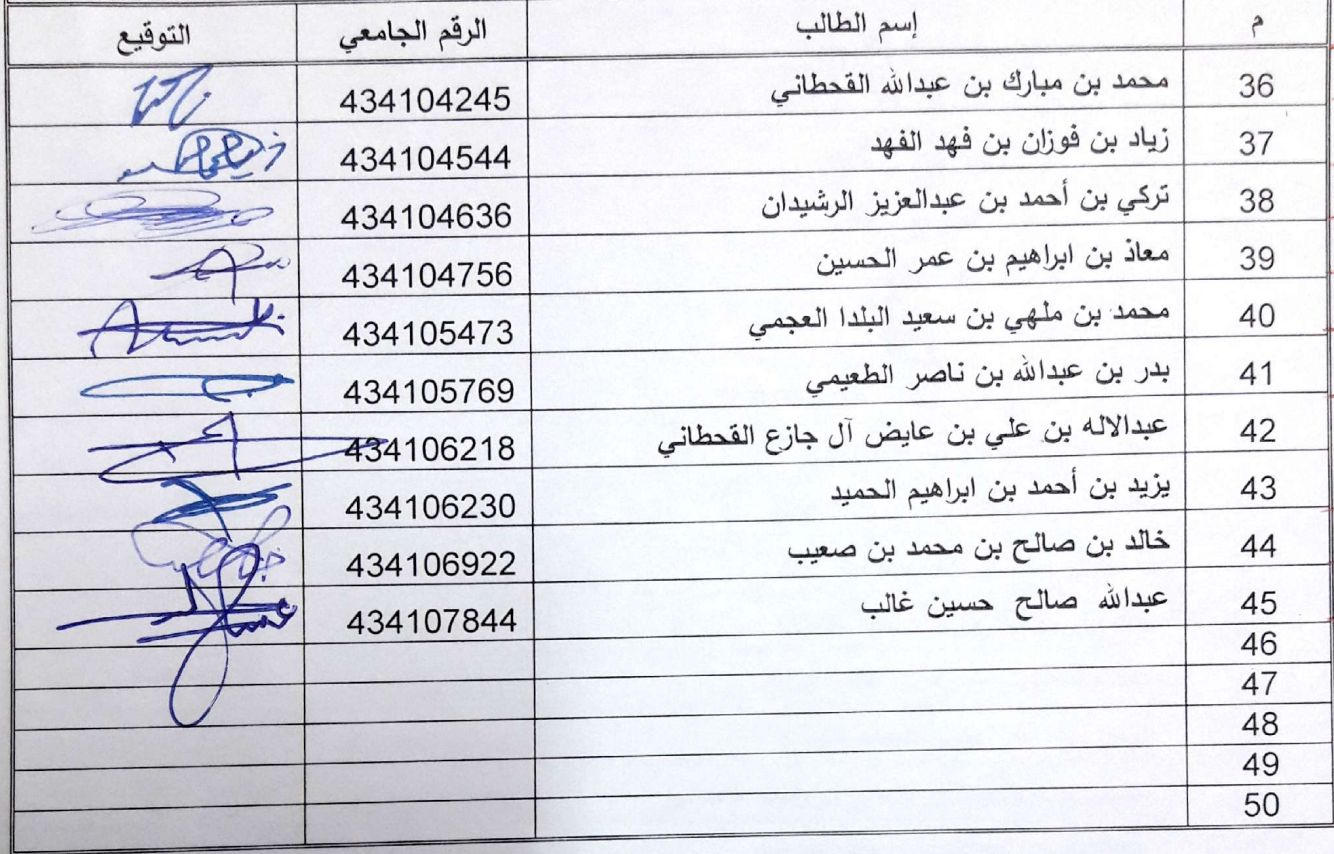 م إسم الطالب الرقم الجامعي التوقيع
36 محمد بن مبارك بن عبدالله القحطاني 434104245
37 زياد بن فوزان بن فهد الفهد 434104544
38 تركي بن أحمد بن عبدالعزيز الرشيدان 434104636
39 معاذ بن ابراهيم بن عمر الحسين 434104756
40 محمد بن ملهي بن سعيد البلدا العجمي 434105473
41 بدر بن عبدالله بن ناصر الطعيمي 434105769
42 عبدالاله بن علي بن عايض آل جازع القحطاني 434106218
43 يزيد بن أحمد بن ابراهيم الحميد 434106230
44 خالد بن صالح بن محمد بن صعيب 434106922
45 عبدالله صالح حسين غالب 434107844
46
47
48
49
50